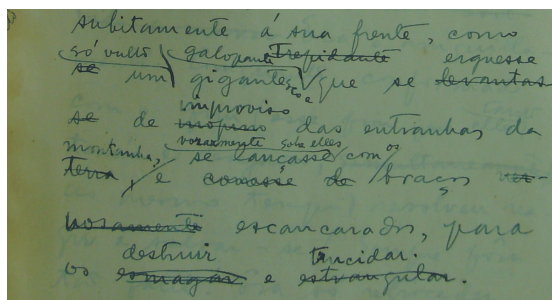 subitamente á sua frente, como
só vulto galopante trepidante erguesse
se um gigantesco e que se levantas
improviso
se de inopino das entranhas da
montanha, vorazmente sobre elles,
terra, se lançasse, com os
e corresse de braços vo-
razmente escancarados, para
destruir trucidar.
os esmagar e estrangular.